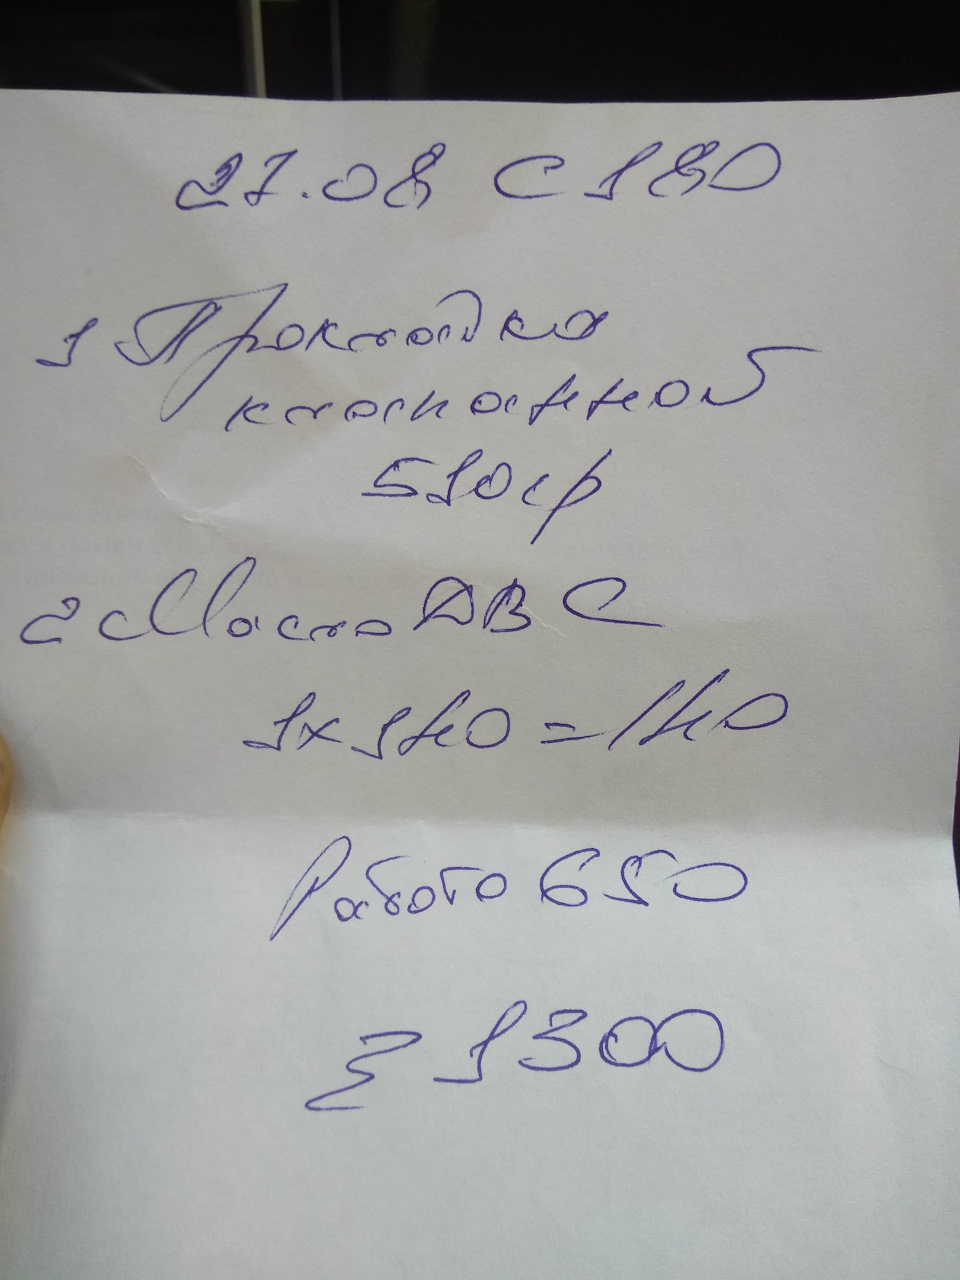 27.08 C180
1 Прокладка
клапанной
510 ср
2 Масло ДВС
1x140=140
Работа 650
Σ 1300